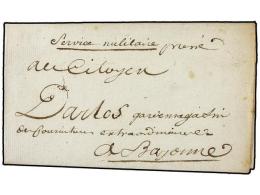 Service militaire pressé
au Citoyen
Dartos garde magasin
de fournitures extraordinaires
a Bajonne